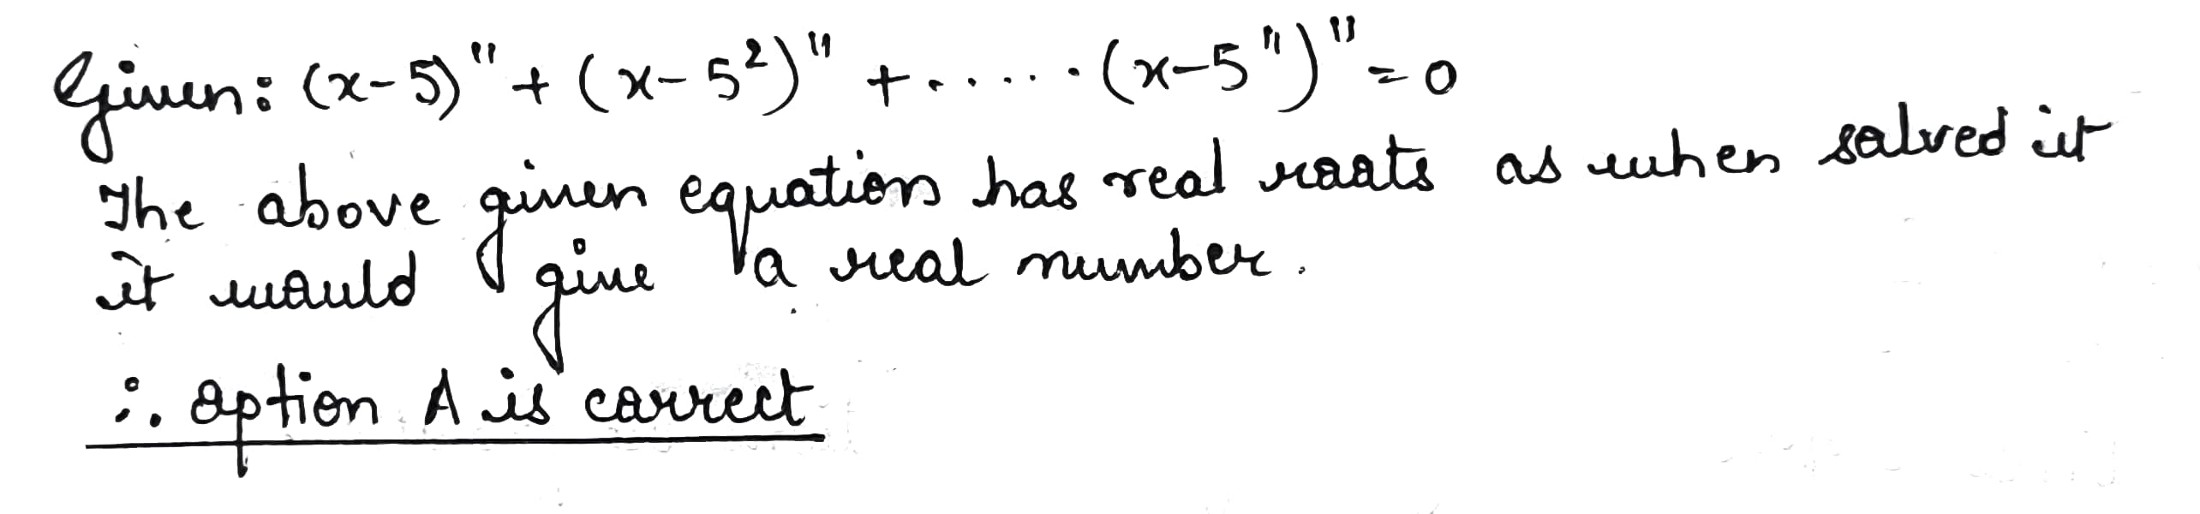 Given: (x-5)¹¹ + (x-5²)¹¹ + ...... (x-5¹¹)¹¹ = 0
The above given equation has real roots as when solved it
it would give a real number.
∴ option A is correct